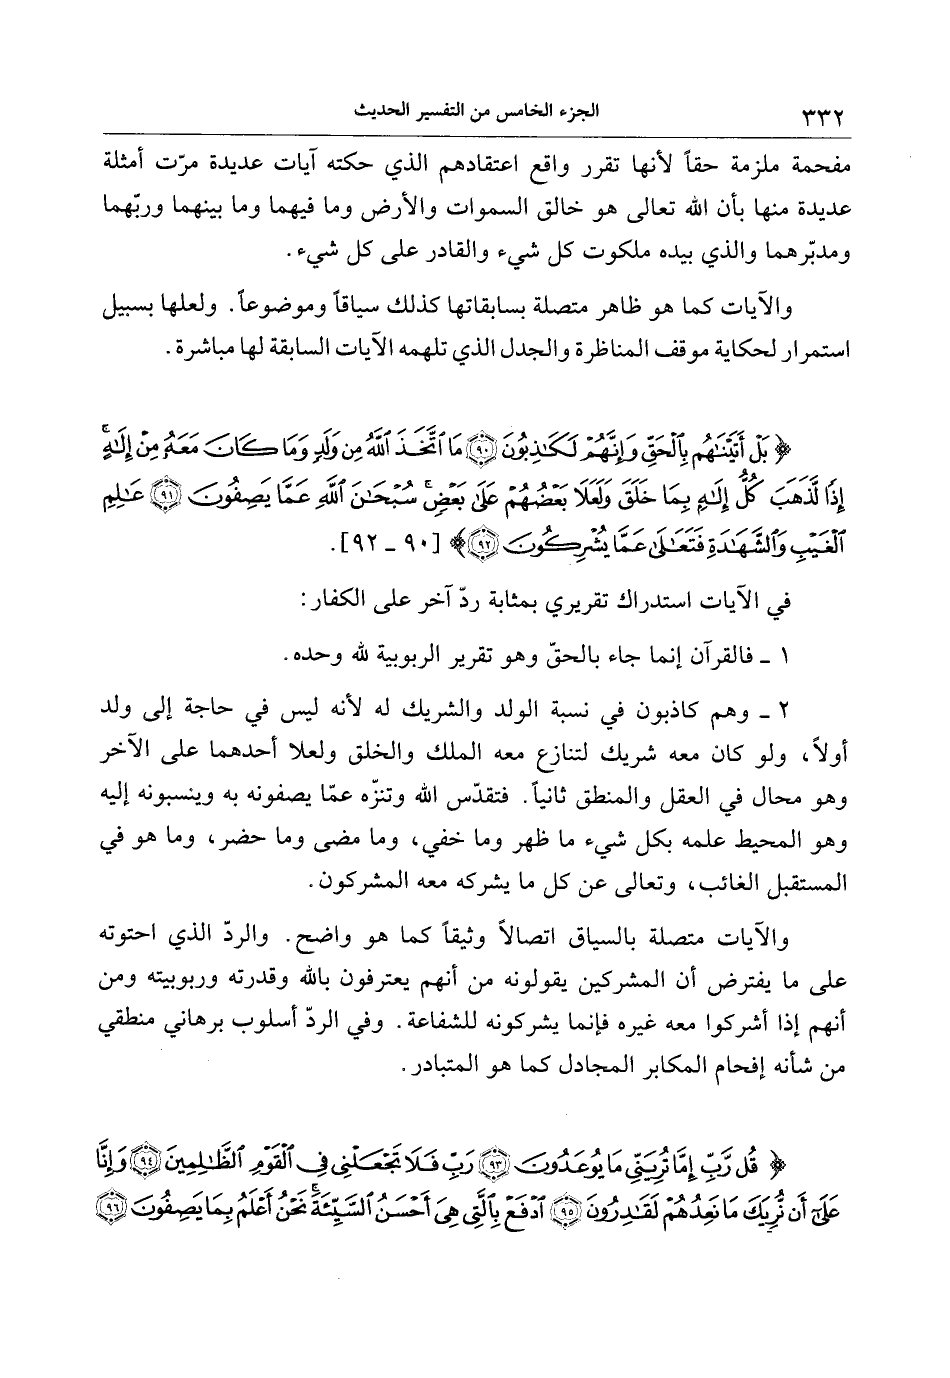 ٣٣٢ الجزء الخامس من التفسير الحديث
مفحمة ملزمة حقاً لأنها تقرر واقع اعتقادهم الذي حكته آيات عديدة مرّت أمثلة
عديدة منها بأن الله تعالى هو خالق السموات والأرض وما فيهما وما بينهما وربّهما
ومدبّرهما والذي بيده ملكوت كل شيء والقادر على كل شيء.
والآيات كما هو ظاهر متصلة بسابقاتها كذلك سياقاً وموضوعاً. ولعلها بسبيل
استمرار لحكاية موقف المناظرة والجدل الذي تلهمه الآيات السابقة لها مباشرة.
﴿ بَلْ أَتَيْنَٰهُم بِٱلْحَقِّ وَإِنَّهُمْ لَكَٰذِبُونَ ٩٠ مَا ٱتَّخَذَ ٱللَّهُ مِن وَلَدٍ وَمَا كَانَ مَعَهُۥ مِنْ إِلَٰهٍ ۚ
إِذًا لَّذَهَبَ كُلُّ إِلَٰهٍۭ بِمَا خَلَقَ وَلَعَلَا بَعْضُهُمْ عَلَىٰ بَعْضٍ ۚ سُبْحَٰنَ ٱللَّهِ عَمَّا يَصِفُونَ ٩١ عَٰلِمِ
ٱلْغَيْبِ وَٱلشَّهَٰدَةِ فَتَعَٰلَىٰ عَمَّا يُشْرِكُونَ ٩٢ ﴾ [٩٠ ـ ٩٢].
في الآيات استدراك تقريري بمثابة ردّ آخر على الكفار:
١ ـ فالقرآن إنما جاء بالحقّ وهو تقرير الربوبية لله وحده.
٢ ـ وهم كاذبون في نسبة الولد والشريك له لأنه ليس في حاجة إلى ولد
أولاً، ولو كان معه شريك لتنازع معه الملك والخلق ولعلا أحدهما على الآخر
وهو محال في العقل والمنطق ثانياً. فتقدّس الله وتنزّه عمّا يصفونه به وينسبونه إليه
وهو المحيط علمه بكل شيء ما ظهر وما خفي، وما مضى وما حضر، وما هو في
المستقبل الغائب، وتعالى عن كل ما يشركه معه المشركون.
والآيات متصلة بالسياق اتصالاً وثيقاً كما هو واضح. والردّ الذي احتوته
على ما يفترض أن المشركين يقولونه من أنهم يعترفون بالله وقدرته وربوبيته ومن
أنهم إذا أشركوا معه غيره فإنما يشركونه للشفاعة. وفي الردّ أسلوب برهاني منطقي
من شأنه إفحام المكابر المجادل كما هو المتبادر.
﴿ قُل رَّبِّ إِمَّا تُرِيَنِّى مَا يُوعَدُونَ ٩٣ رَبِّ فَلَا تَجْعَلْنِى فِى ٱلْقَوْمِ ٱلظَّٰلِمِينَ ٩٤ وَإِنَّا
عَلَىٰٓ أَن نُّرِيَكَ مَا نَعِدُهُمْ لَقَٰدِرُونَ ٩٥ ٱدْفَعْ بِٱلَّتِى هِىَ أَحْسَنُ ٱلسَّيِّئَةَ ۚ نَحْنُ أَعْلَمُ بِمَا يَصِفُونَ ٩٦